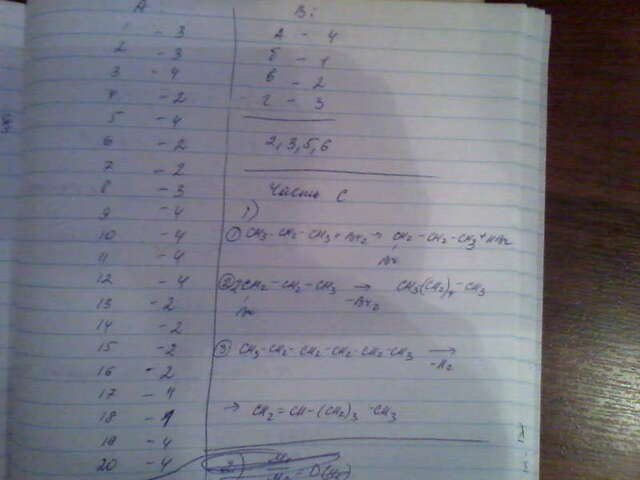 A
1 - 3
2 - 3
3 - 4
4 - 2
5 - 4
6 - 2
7 - 2
8 - 3
9 - 4
10 - 4
11 - 4
12 - 4
13 - 2
14 - 2
15 - 2
16 - 2
17 - 4
18 - 1
19 - 4
20 - 4
B:
а - 4
б - 1
в - 2
г - 3
2, 3, 5, 6
Часть С
1)
① CH3-CH2-CH3 + Br2 → CH2-CH2-CH3 + HBr
Br
② 2CH2-CH2-CH3 → CH3(CH2)4-CH3
Br -Br2
③ CH3-CH2-CH2-CH2-CH2-CH3 →
-H2
→ CH2=CH-(CH2)3-CH3
2)